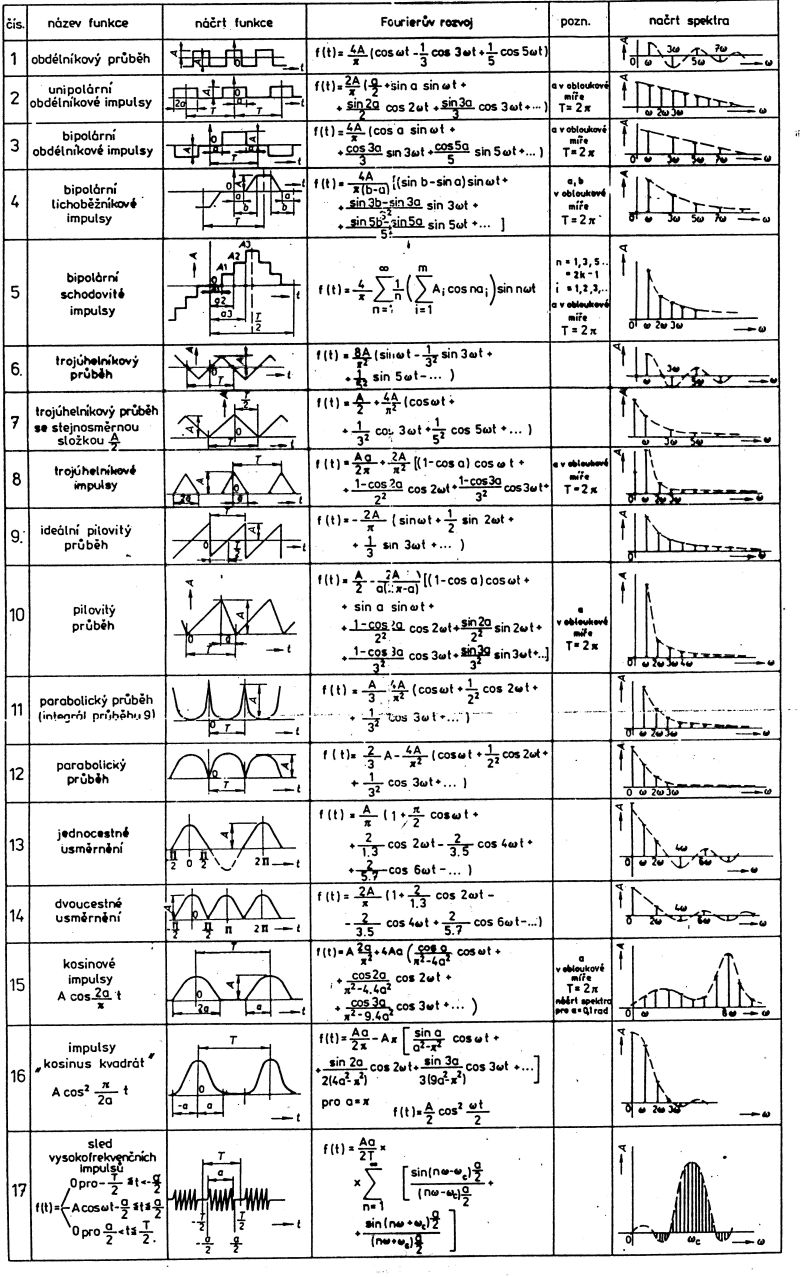 čís. název funkce náčrt funkce Fourierův rozvoj pozn. načrt spektra
1 obdélníkový průběh
f(t) = 4A/π (cos ωt - 1/3 cos 3ωt + 1/5 cos 5ωt)
2 unipolární
obdélníkové impulsy
f(t) = 2A/π (a/2 + sin a sin ωt +
+ sin2a/2 cos 2ωt + sin3a/3 cos 3ωt + ...)
a v obloukové
míře
T = 2π
3 bipolární
obdélníkové impulsy
f(t) = 4A/π (cos a sin ωt +
+ cos3a/3 sin 3ωt + cos5a/5 sin 5ωt + ...)
a v obloukové
míře
T = 2π
4 bipolární
lichoběžníkové
impulsy
f(t) = 4A/π(b-a) [(sin b - sin a) sin ωt +
+ sin3b - sin3a/3² sin 3ωt +
+ sin5b - sin5a/5² sin 5ωt + ... ]
a, b
v obloukové
míře
T = 2π
5 bipolární
schodovité
impulsy
A1 A2 A3
f(t) = 4/π ∑ 1/n ( ∑ Ai cos nai ) sin nωt
n = 1,3,5..
= 2k-1
i = 1,2,3,..
a v obloukové
míře
T = 2π
6. trojúhelníkový
průběh
f(t) = 8A/π² (sin ωt - 1/3² sin 3ωt +
+ 1/5² sin 5ωt - ... )
7 trojúhelníkový průběh
se stejnosměrnou
složkou A/2
f(t) = A/2 + 4A/π² (cos ωt +
+ 1/3² cos 3ωt + 1/5² cos 5ωt + ... )
8 trojúhelníkové
impulsy
f(t) = Aa/2π + 2A/π² [(1-cos a) cos ωt +
+ 1-cos2a/2² cos 2ωt + 1-cos3a/3² cos 3ωt +
a v obloukové
míře
T = 2π
9. ideální pilovitý
průběh
f(t) = - 2A/π ( sin ωt + 1/2 sin 2ωt +
+ 1/3 sin 3ωt + ... )
10 pilovitý
průběh
f(t) = A/2 - 2A/a(2π-a) [(1-cos a) cos ωt +
+ sin a sin ωt +
+ 1-cos 2a/2² cos 2ωt + sin2a/2² sin 2ωt +
+ 1-cos 3a/3² cos 3ωt + sin3a/3² sin 3ωt + ..]
a
v obloukové
míře
T = 2π
11 parabolický průběh
(integrál průběhu 9)
f(t) = A/3 4A/π² (cos ωt + 1/2² cos 2ωt +
+ 1/3² cos 3ωt + ... )
12 parabolický
průběh
f(t) = 2/3 A - 4A/π² (cos ωt + 1/2² cos 2ωt +
+ 1/3² cos 3ωt + ... )
13 jednocestné
usměrnění
f(t) = A/π (1 + π/2 cos ωt +
+ 2/1.3 cos 2ωt - 2/3.5 cos 4ωt +
+ 2/5.7 cos 6ωt - ... )
14 dvoucestné
usměrnění
f(t) = 2A/π (1 + 2/1.3 cos 2ωt -
- 2/3.5 cos 4ωt + 2/5.7 cos 6ωt - ...)
15 kosinové
impulsy
A cos 2a/π t
f(t) = A 2a/π² + 4Aa ( cos a/π²-4a² cos ωt +
+ cos2a/π²-4.4a² cos 2ωt +
+ cos3a/π²-9.4a² cos 3ωt + ... )
a
v obloukové
míře
T = 2π
náčrt spektra
pro a=0,1 rad
16 impulsy
"kosinus kvadrát"
A cos² π/2a t
f(t) = Aa/2π - Aπ [ sin a/a²-π² cos ωt +
+ sin 2a/2(4a²-π²) cos 2ωt + sin 3a/3(9a²-π²) cos 3ωt + ... ]
pro a = π
f(t) = A/2 cos² ωt/2
17 sled
vysokofrekvenčních
impulsů
f(t) = 0 pro - T/2 ≤ t < - a/2
A cos ωt - a/2 ≤ t ≤ a/2
0 pro a/2 < t ≤ T/2
f(t) = Aa/2T ×
× ∑ [ sin(nω-ωc) a/2 / (nω-ωc) a/2 +
+ sin(nω+ωc) a/2 / (nω+ωc) a/2 ]